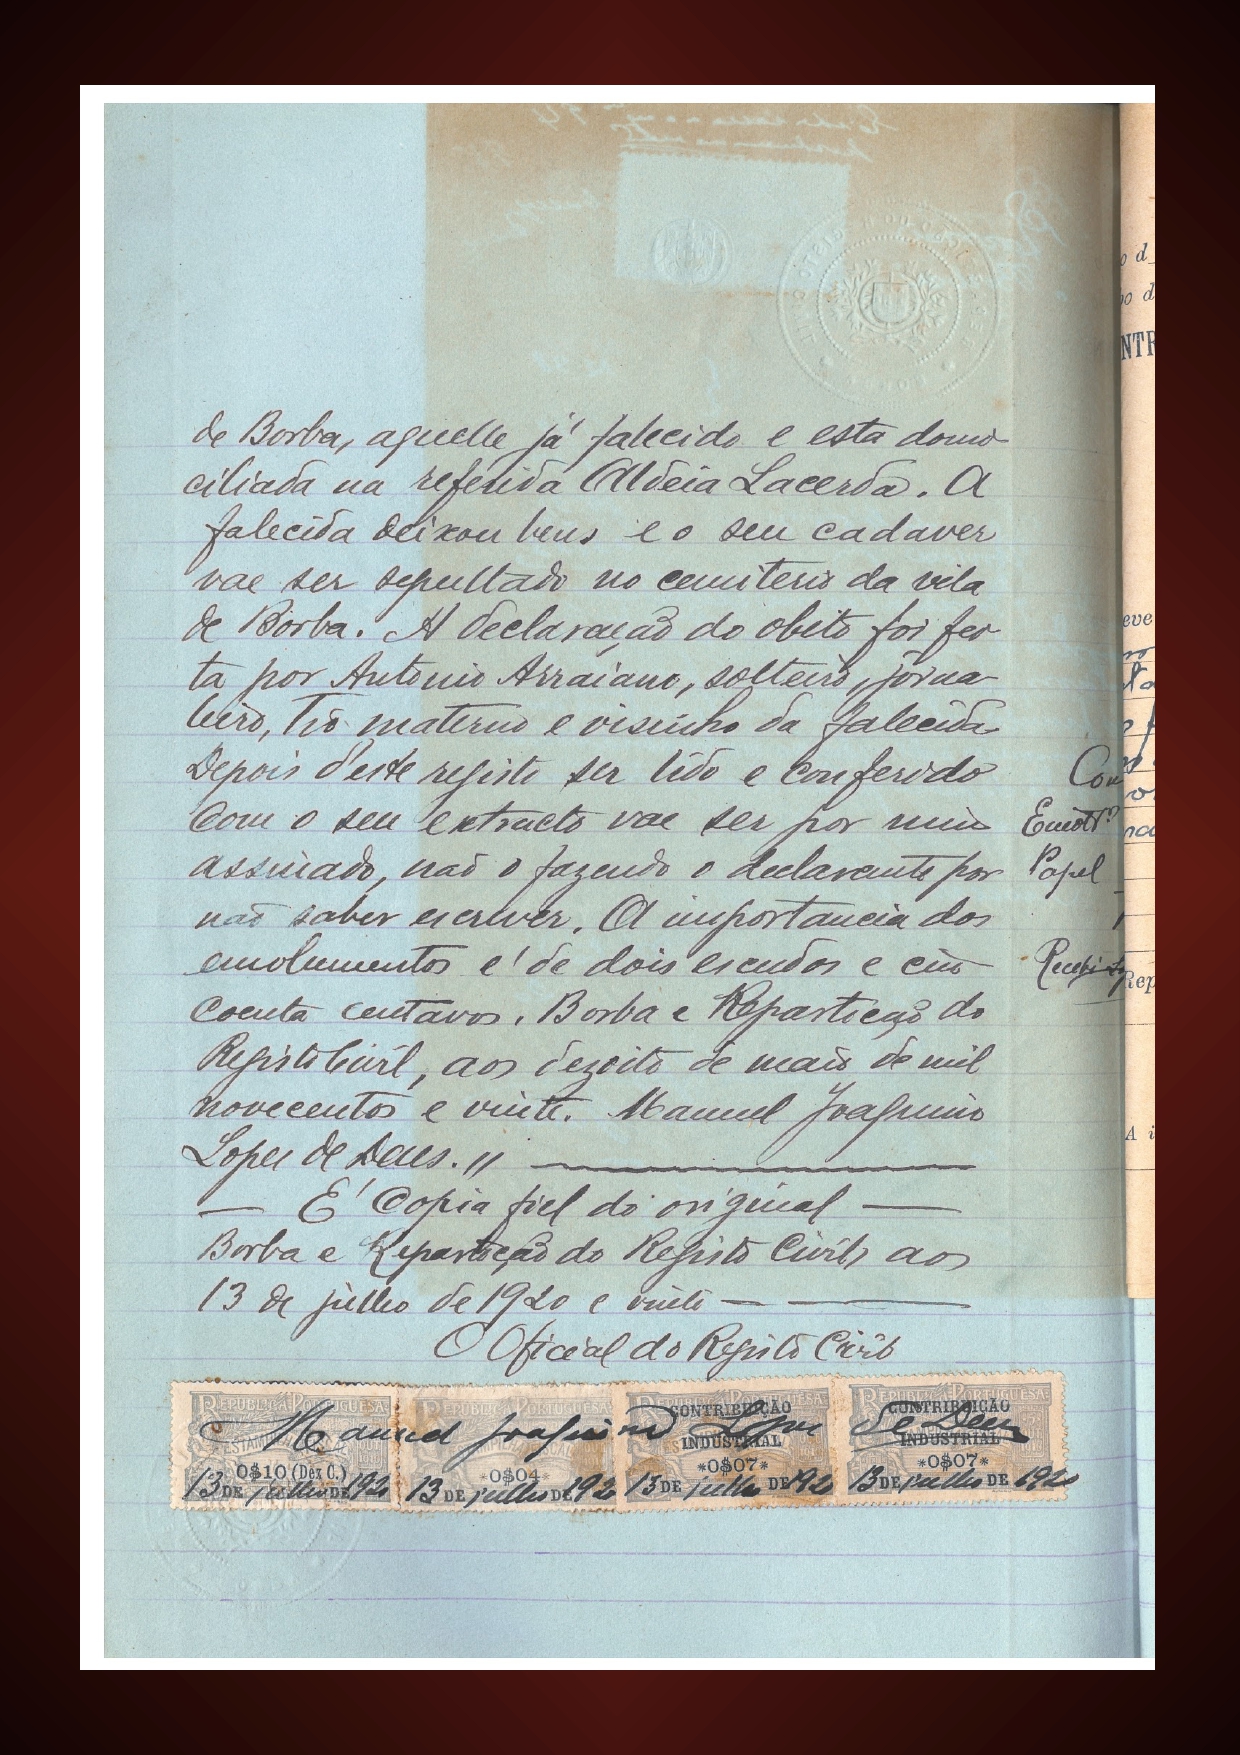 de Borba, aquelle já falecido e esta domi
ciliada na referida Aldeia Lacerda. A
falecida deixou bens e o seu cadaver
vae ser sepultado no cemiterio da vila
de Borba. A declaração do obito foi fei
ta por Antonio Arraiano, solteiro, jorna
leiro, tio materno e visinho da falecida
Depois d'este registo ser lido e conferido
com o seu extracto vae ser por mim
assinado, não o fazendo o declarante por
não saber escrever. A importancia dos
emolumentos é de dois escudos e cin
coenta centavos. Borba e Repartição do
Registo Civil, aos dezoito de maio de mil
novecentos e vinte. Manuel Joaquim
Lopes de Deus. //
— É copia fiel do original —
Borba e Repartição do Registo Civil, aos
13 de julho de 1920 e vinte — —
O Oficial do Registo Civil
Manuel Joaquim Lopes de Deus
REPUBLICA PORTUGUESA REPUBLICA PORTUGUESA REPUBLICA PORTUGUESA REPUBLICA PORTUGUESA
CONTRIBUIÇÃO CONTRIBUIÇÃO
INDUSTRIAL INDUSTRIAL
0$10 (Dez C.) *0$04* *0$07* *0$07*
13 DE julho DE 1920 13 DE julho DE 1920 13 DE julho DE 1920 13 DE julho DE 1920
Papel
NTR
eve
A i